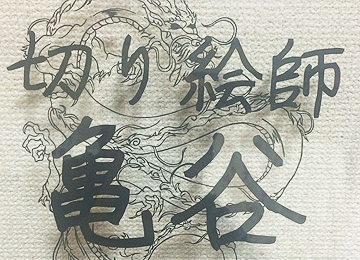 切り絵師
亀谷